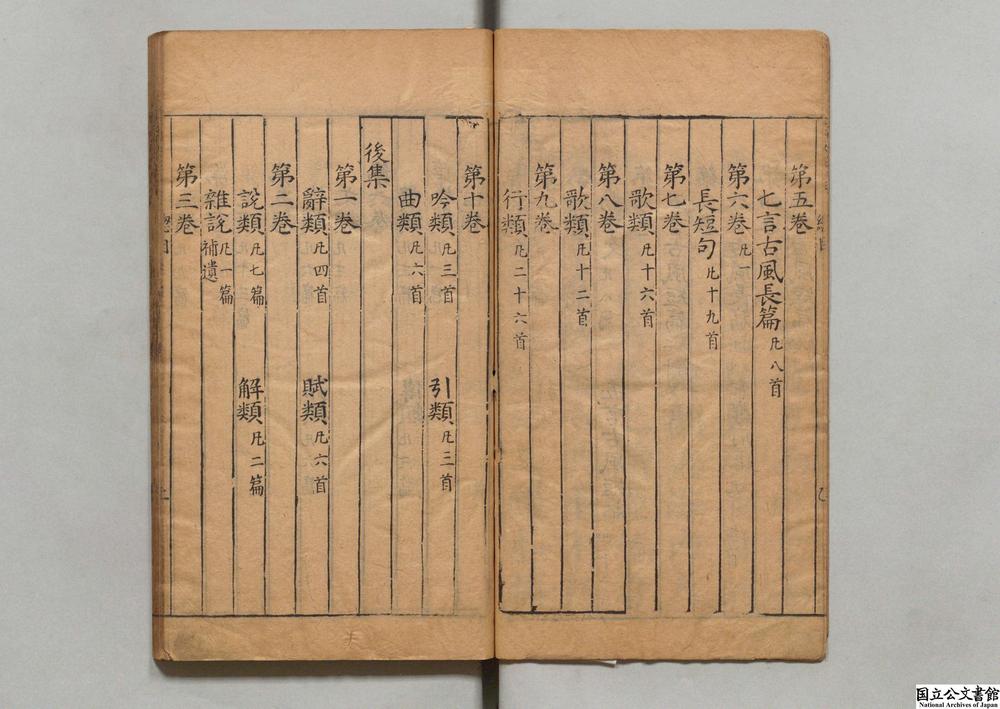 第五卷
七言古風長篇凡八首
第六卷凡一
長短句凡十九首
第七卷
歌類凡十六首
第八卷
歌類凡十二首
第九卷
行類凡二十六首
第十卷
吟類凡三首 引類凡三首
曲類凡六首
後集
第一卷
辭類凡四首 賦類凡六首
第二卷
說類凡七篇 解類凡二篇
雜說凡一篇補遺
第三卷
国立公文書館
National Archives of Japan